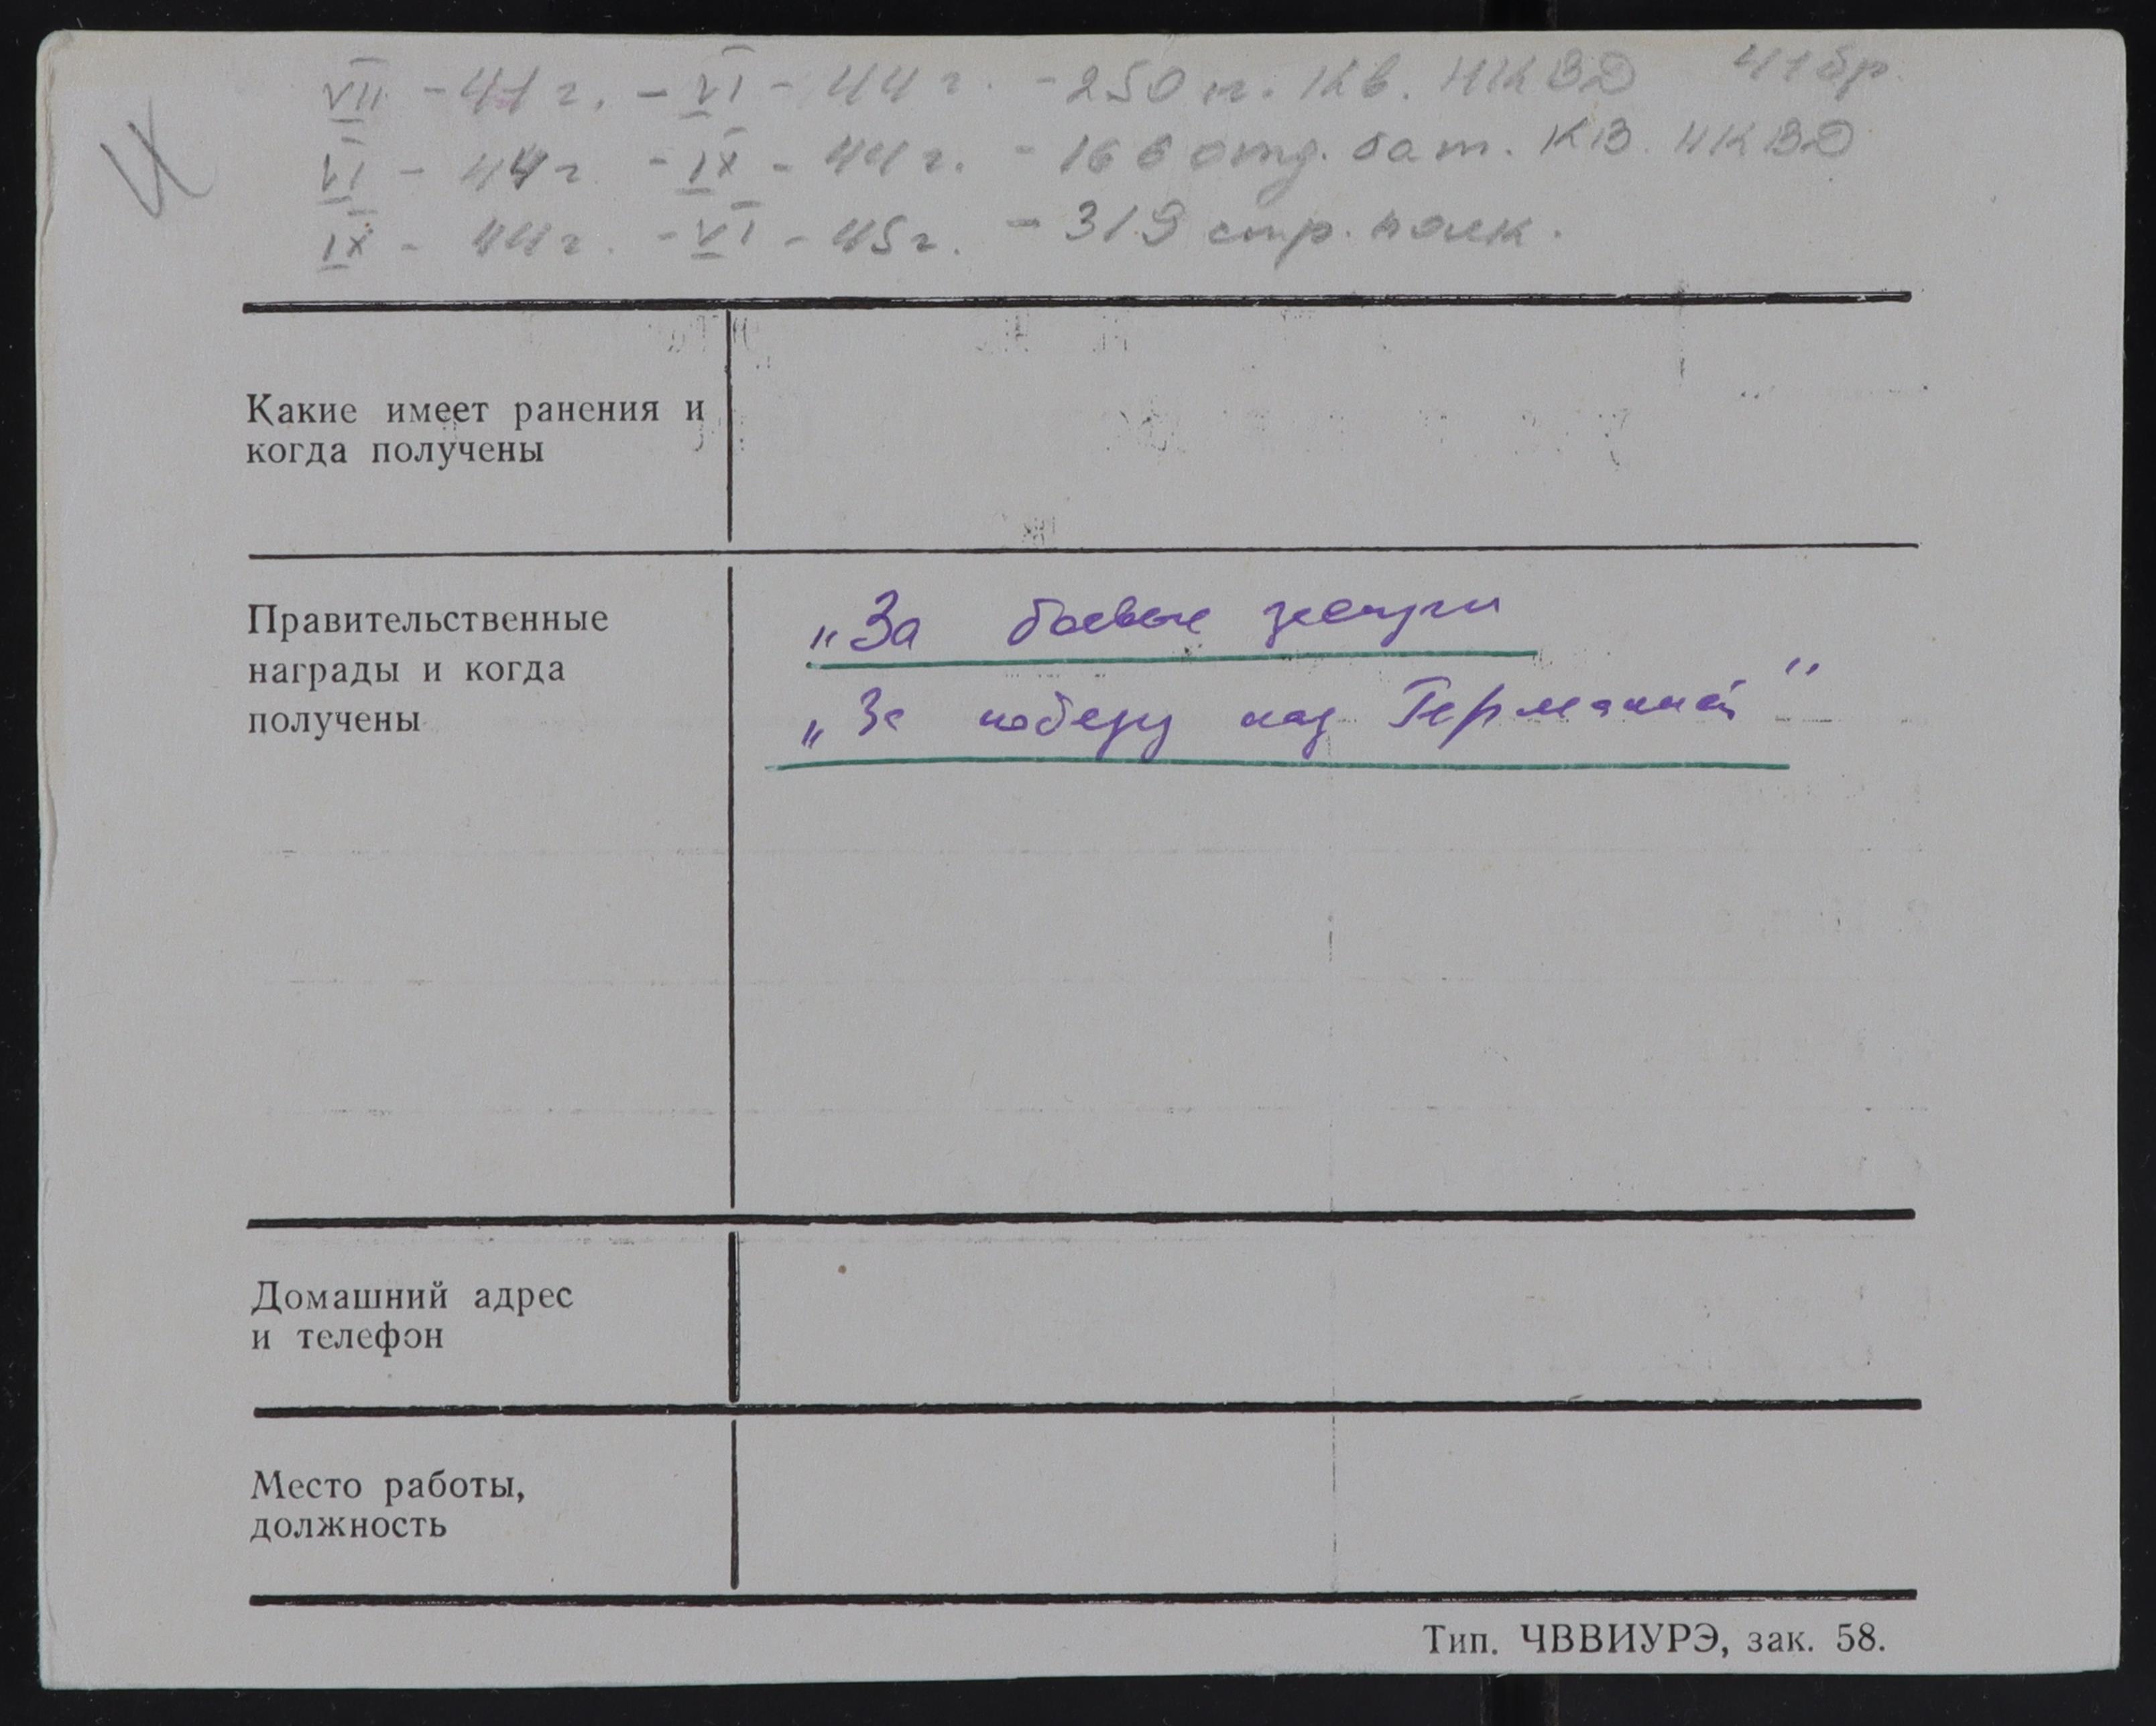 VII - 41 г. - VI - 44 г. - 250 п. Кв. НКВД 41 бр
VI - 44 г - IX - 44 г. - 166 отд. бат. КВ. НКВД
IX - 44 г. - VI - 45 г. - 319 стр. полк.
Какие имеет ранения и
когда получены
Правительственные
награды и когда
получены
„За боевые заслуги
„За победу над Германией"
Домашний адрес
и телефон
Место работы,
должность
Тип. ЧВВИУРЭ, зак. 58.